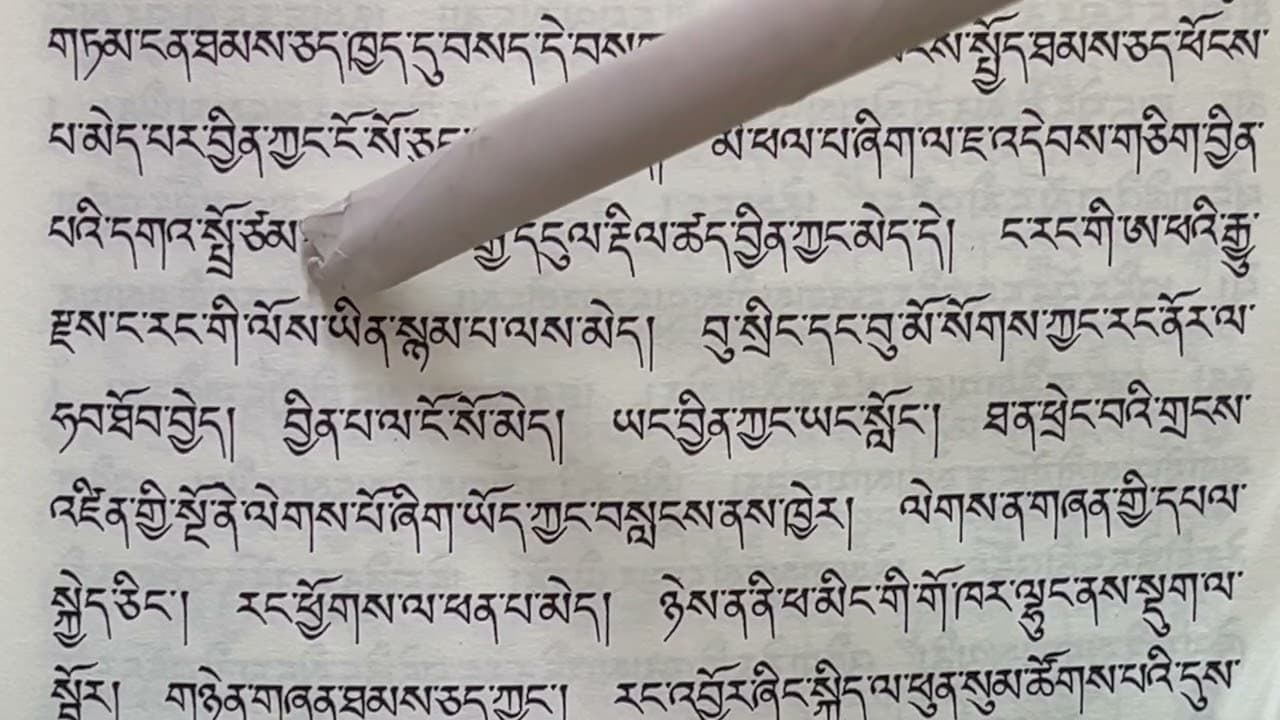 གཏམ་ངན་ཐམས་ཅད་ཁྱད་དུ་བསད་དེ་ སྤྱོད་ཐམས་ཅད་ཕོངས་
པ་མེད་པར་བྱིན་ཀྱང་ངོ་སོ་ཅུང་ མི་ཕལ་པ་ཞིག་ལ་ཇ་འདེབས་གཅིག་བྱིན་
པའི་དགའ་སྤྲོ་ཙམ་ དངུལ་རྡིལ་ཚད་བྱིན་ཀྱང་མེད་དེ། ང་རང་གི་ཨ་ཕའི་རྒྱུ་
རྫས་ང་རང་གི་ལོས་ཡིན་སྙམ་པ་ལས་མེད། བུ་སྲིང་དང་བུ་མོ་སོགས་ཀྱང་རང་ནོར་ལ་
ཧབ་ཐོབ་བྱེད། བྱིན་པ་ལ་ངོ་སོ་མེད། ཡང་བྱིན་ཀྱང་ཡང་སློང་། ཐན་ཕྲེང་བའི་གྲངས་
འཛིན་གྱི་སྔོ་ནེ་ལེགས་པོ་ཞིག་ཡོད་ཀྱང་བསླངས་ནས་ཁྱེར། ལེགས་ན་གཞན་གྱི་དཔལ་
སྐྱེད་ཅིང་། རང་ཕྱོགས་ལ་ཕན་པ་མེད། ཉེས་ན་ནི་ཕ་མིང་གི་གོ་ཁར་ལྷུང་ནས་སྡུག་ལ་
སྦྱོར། གཉེན་གཞན་ཐམས་ཅད་ཀྱང་། རང་འབྱོར་ཞིང་སྐྱིད་ལ་ཕུན་སུམ་ཚོགས་པའི་དུས་